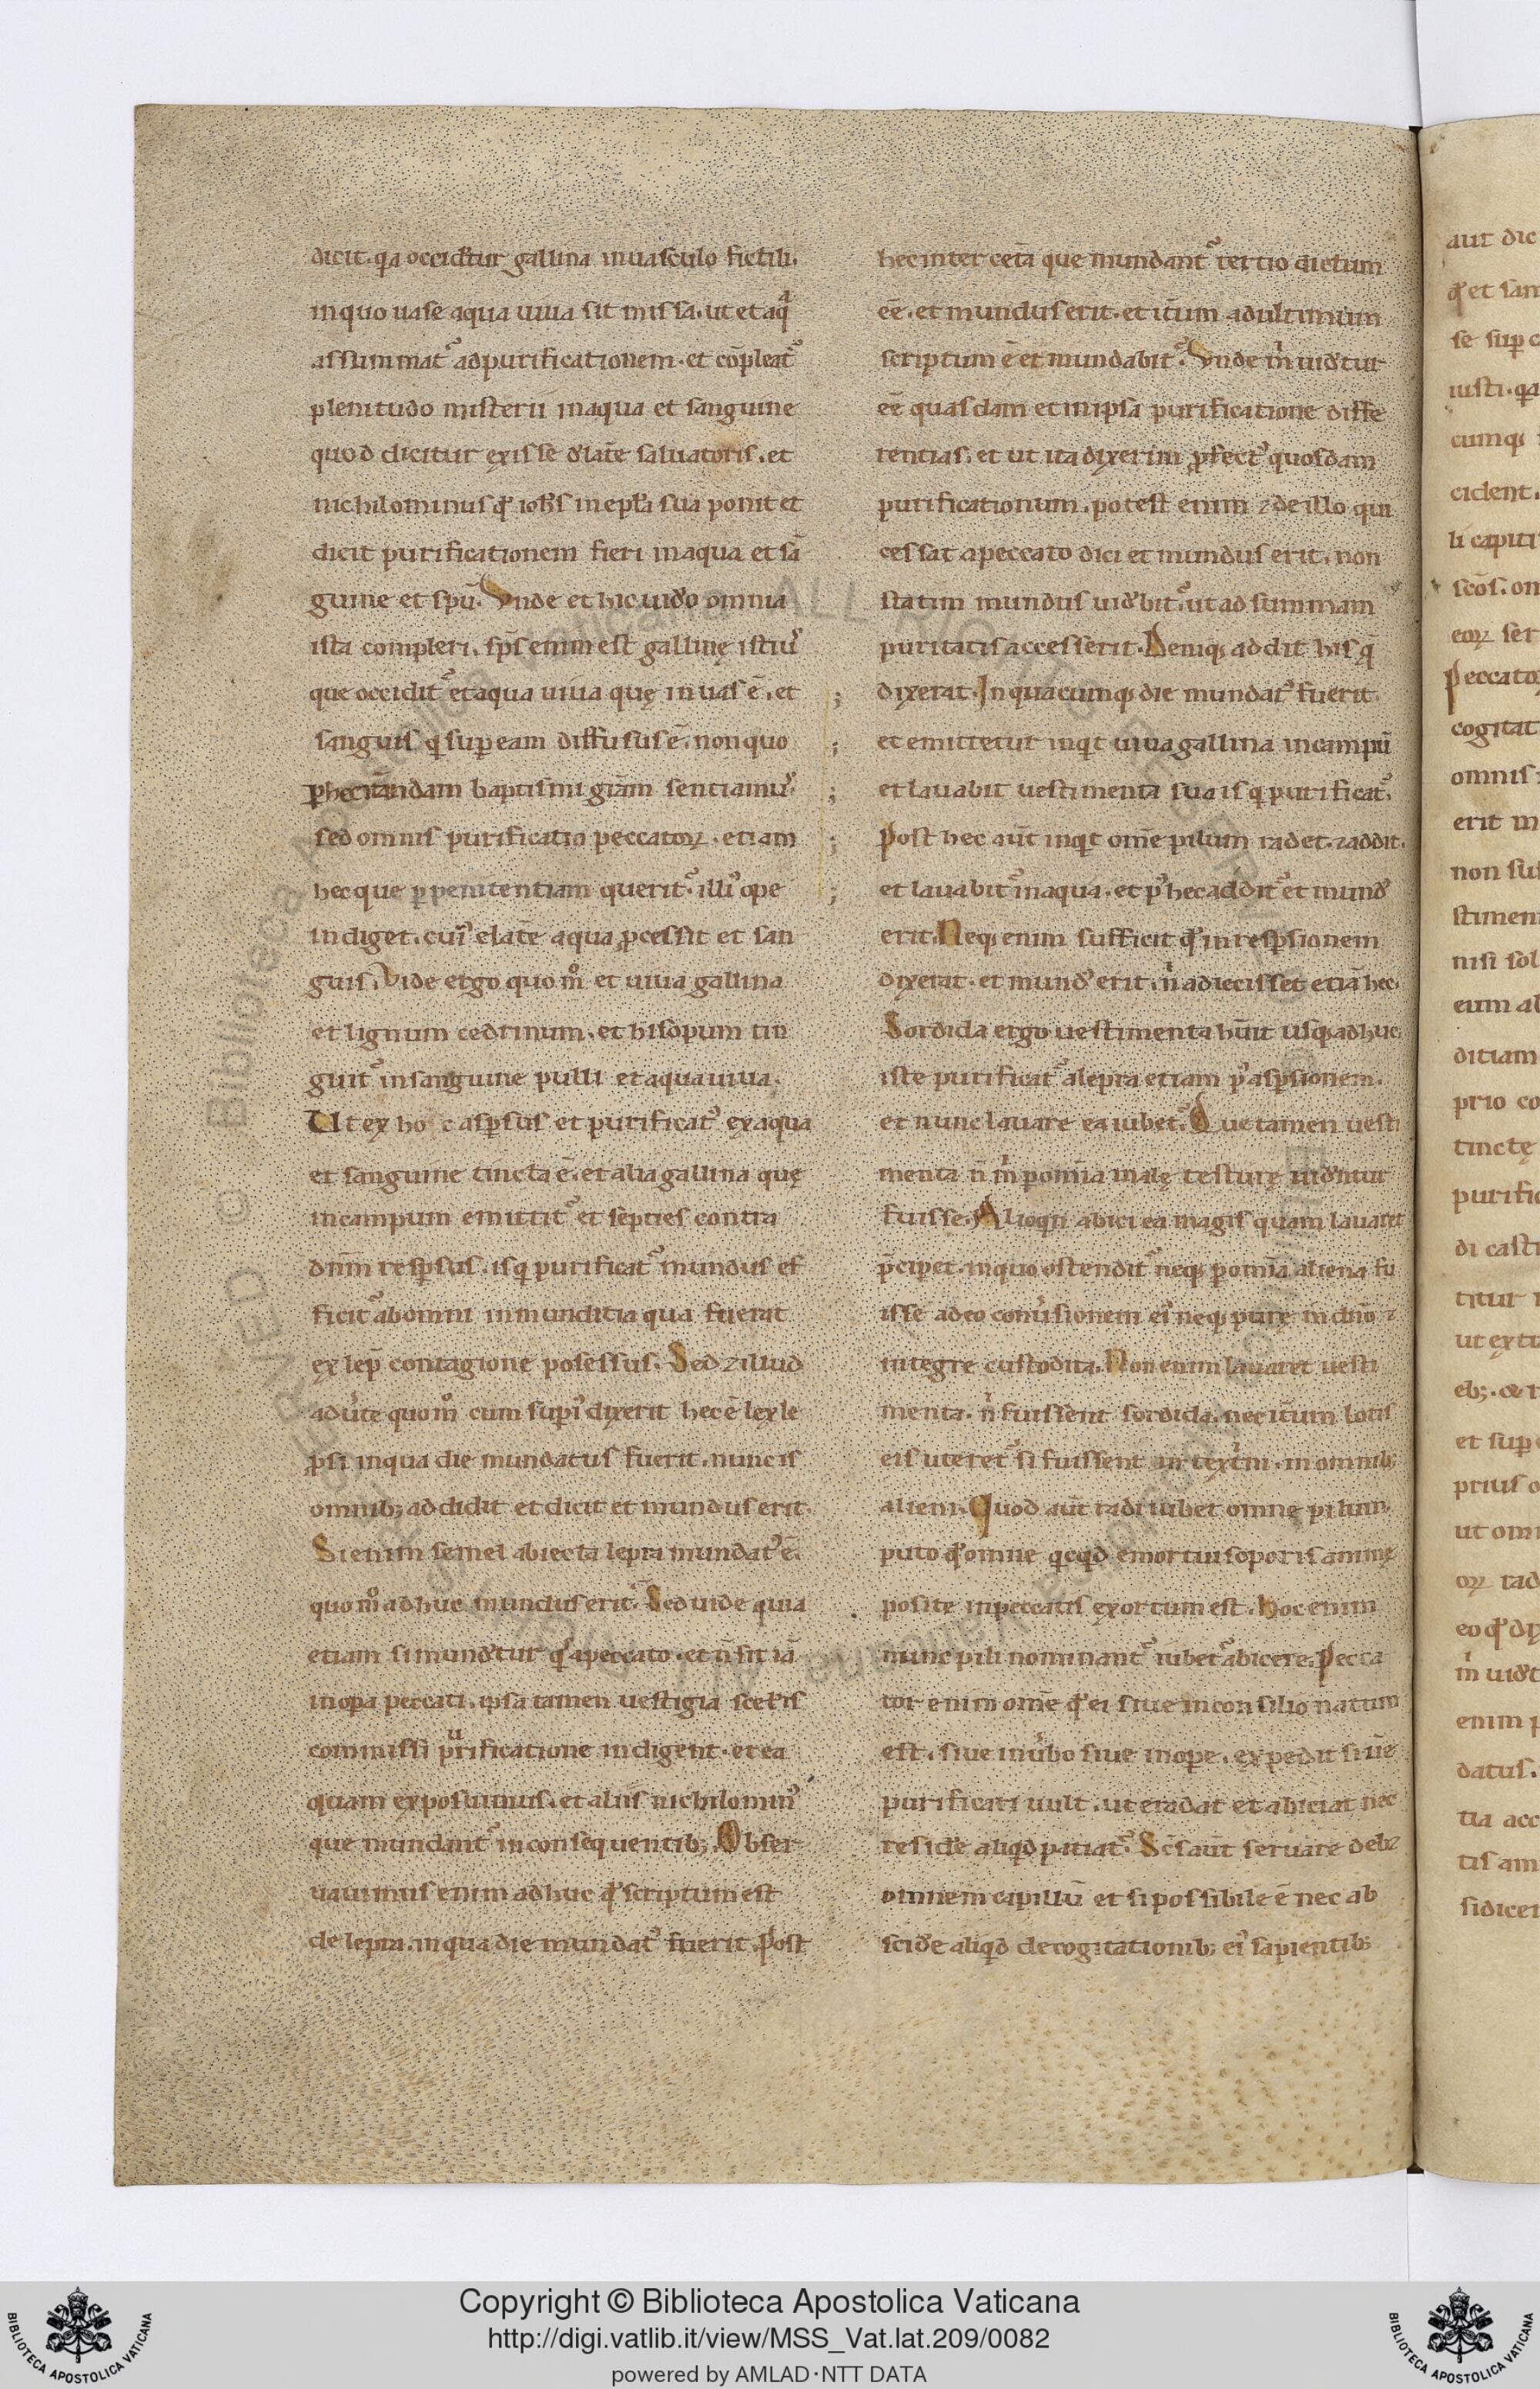 dicit. q̇a occidetur gallina in uasculo fictili.
in quo uase aqua uiua sit missa. ut et aqͣ
assummat᷑ ad purificationem. et cōpleat᷑
plenitudo misterii in aqua et sanguine
quod dicitur exisse d̕ latē saluatoris. et
nichilominus qd̕ ioħs in ep̄la sua ponit et
dicit purificationem fieri in aqua et sā
guine et sp̄u. Vnde et hic uid̕o omnia
ista compleri. sp̄s enim est gallinę istiꝰ
que occidit᷑ et aqua uiua quę in uas ē. et
sanguis q̇ sup eam diffusus ē. non quo
ꝑ hec itandam baptismi gr̄am sentiamꝰ.
sed omnis purificatio peccatoꝝ. etiam
hec que ꝑ penitentiam querit᷑. illiꝰ ope
indiget. cuiꝰ e latē aqua ꝓcessit et san
guis. Vide ergo quom̊ et uiua gallina
et lignum cedrinum. et hisopum tin
guit᷑ in sanguine pulli et aqua uiua.
Ut ex hoc asp̄sus et purificatꝰ ex aqua
et sanguine tincta ē. et alia gallina quę
in campum emittit᷑ et septies contra
dn̄m resp̄sus. is q̇ purificat᷑ mundus ef
ficit᷑ ab omni inmunditia qua fuerat
ex lep̄ contagione posessus. Sed ⁊ illud
adu̕te quom̊ cum supi̕ dixerit hec ē lex le
ꝓsi in qua die mundatus fuerit. nunc is
omnib; addidit et dicit et mundus erit.
Si enim semel abiecta lepra mundatꝰ ē.
quom̊ adhuc mundus erit᷑. Sed uide quia
etiam si mund̕tur q̇s a peccato. et n̄ sit iā
in opa peccati. ipsa tamen uestigia scel̕is
commissi purificatione indigent. et ea
quam exposuimus. et aliis nichilominꝰ
que mundant᷑ in consequentib;. Obser
uauimus enim adhuc qd̕ scriptum est
de lepra. in qua die mundatꝰ fuerit. Post
hec inter cet̕a que mundant᷑ tertio dictum
eē. et mundus erit. et it̕um ad ultimum
scriptum ē et mundabit᷑. Vnde m̊ uid̕tur
eē quasdam et in ipsa purificatione diffe
rentias. et ut ita dixerim ꝓfectꝰ quosdam
purificationum. potest enim ⁊ de illo qui
cessat a peccato dici et mundus erit. non
statim mundus uid̕bit᷑. ut ad summam
puritatis accesserit. Deniq; addit his q̄
dixerat. In quacumq; die mundatꝰ fuerit.
et emittetur inq̇t uiua gallina in campū
et lauabit uestimenta sua is q̇ purificat᷑.
Post hec aūt inq̇t om̄e pilum radet. ⁊ addit.
et lauabit᷑ in aqua. et pꝰ hec addit᷑ et mundꝰ
erit. Neq; enim sufficit qd̕ in resp̄sionem
dixerat. et mundꝰ erit. n̊ adiecisset etiā hec.
Sordida ergo uestimenta hūit usq; adhuc
iste purificat᷑ a lepra etiam pꝰ asp̄sionem.
et nunc lauare ea iubet᷑. Que tamen uesti
menta n̄ m̊ ꝑ omnia malę texturę uid̕ntur
fuisse. Alioqn abici ea magis quam lauaret
p̄cipet. in quo ostendit᷑ neq; ꝑ omnia aliena fu
isse adeo conu̕sionem eiꝰ neq; purę in dn̄o ⁊
integre custodita. Non enim lauaret uesti
menta. n̊ fuissent sordida. nec it̕um lotis
eis uteret᷑ si fuissent in text̕ni. in omnib;
alieni. Quod aūt radi iubet omnę pilum
puto qd̕ omne q̇cq̇d emortui soporis animę
posite in peccatis exortum est. Hoc enim
nunc pili nominant᷑ iubet᷑ abicere. Pecca
tor enim om̄e qd̕ ei siue in consilio natum
est. siue in u̕bo siue in ope. expedit si ūe
purificari uult. ut eradat et abiciat nec
resid̕e aliq̇d patiat᷑. Sc̄s aūt seruare deb⁊
omnem capillū et si possibile ē nec ab
scid̕e aliq̇d de cogitationib; eiꝰ sapientib;
Copyright © Biblioteca Apostolica Vaticana
http://digi.vatlib.it/view/MSS_Vat.lat.209/0082
powered by AMLAD·NTT DATA